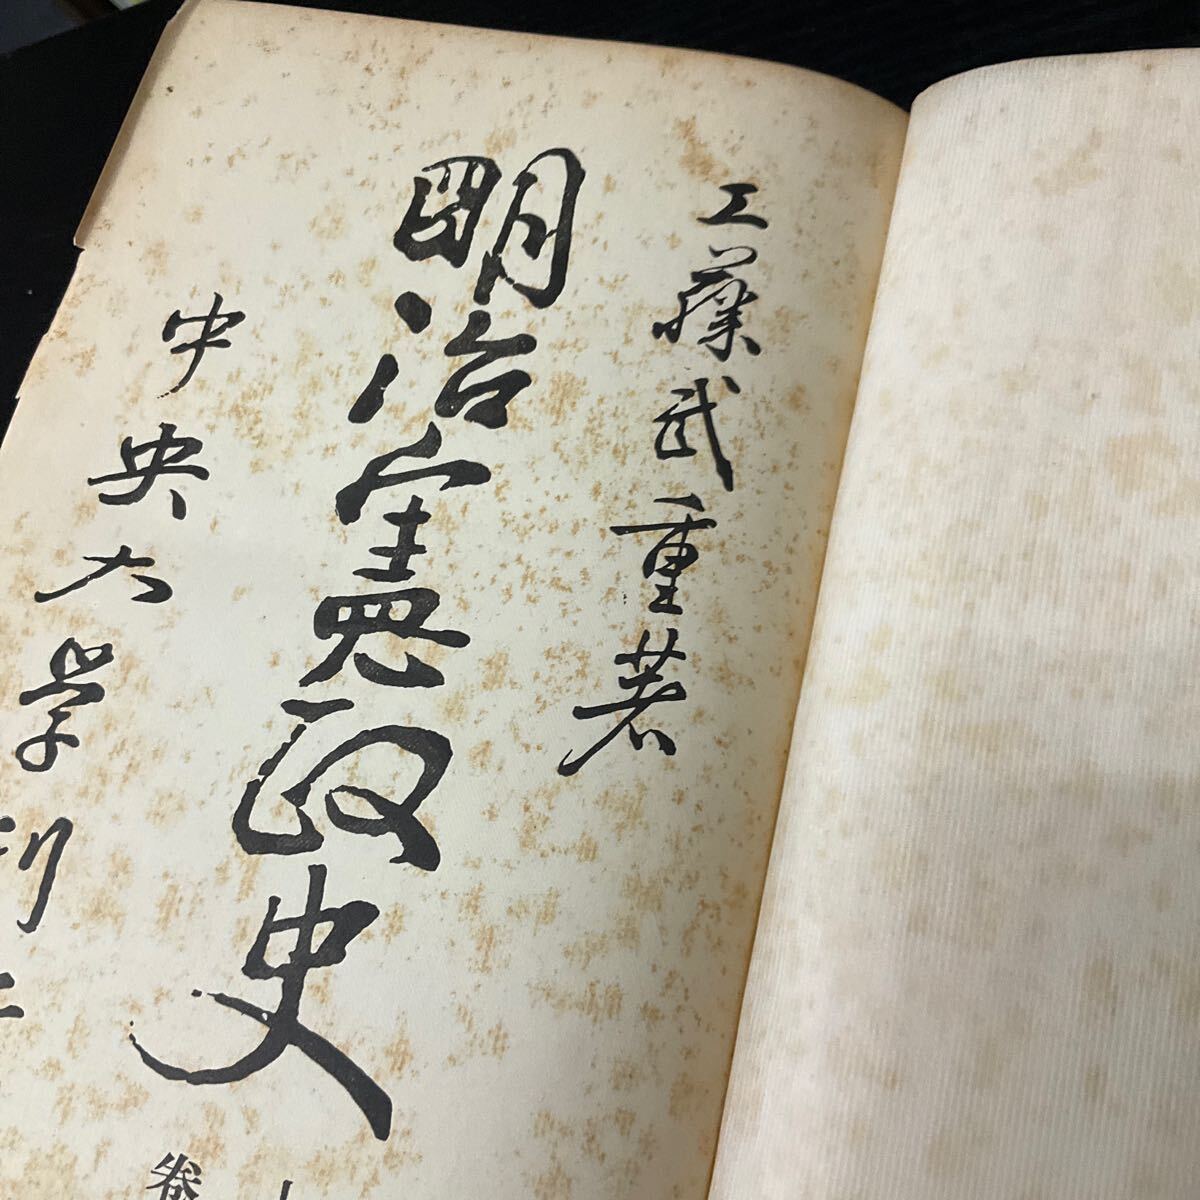 工藤武重著
明治憲政史
上卷
中央大學刊